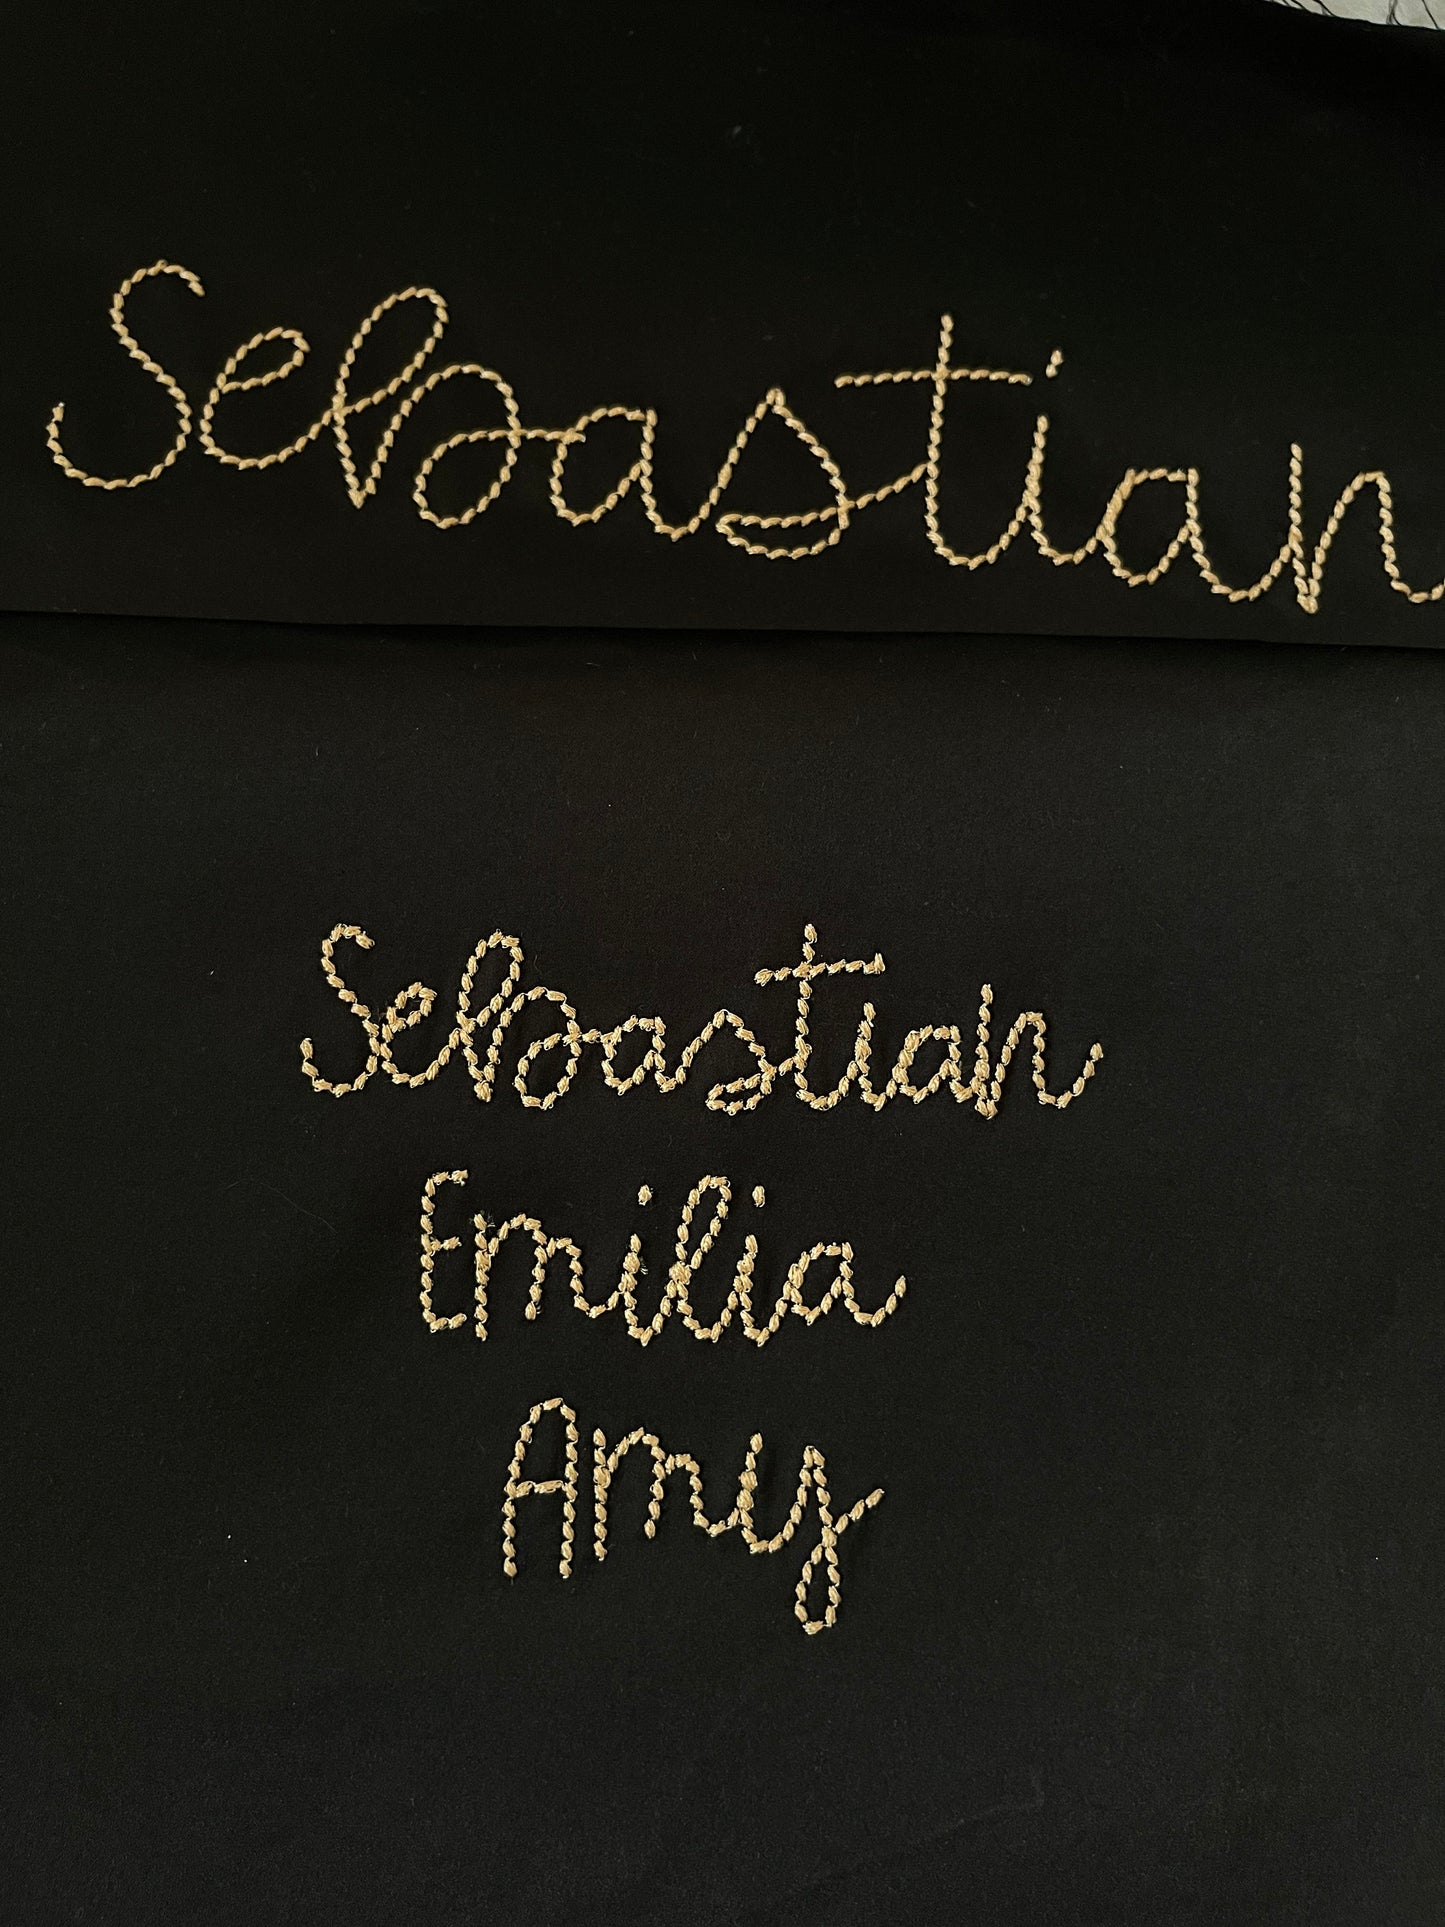 Sebastian
Sebastian
Emilia
Amy